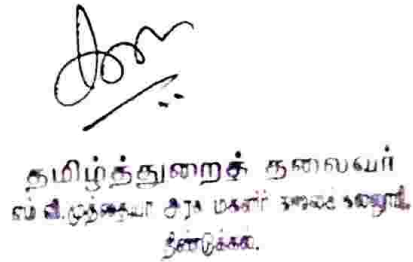 தமிழ்த்துறைத் தலைவர்
எம் வி.முத்தையா அரசு மகளிர் கலைக் கல்லூரி,
திண்டுக்கல்.